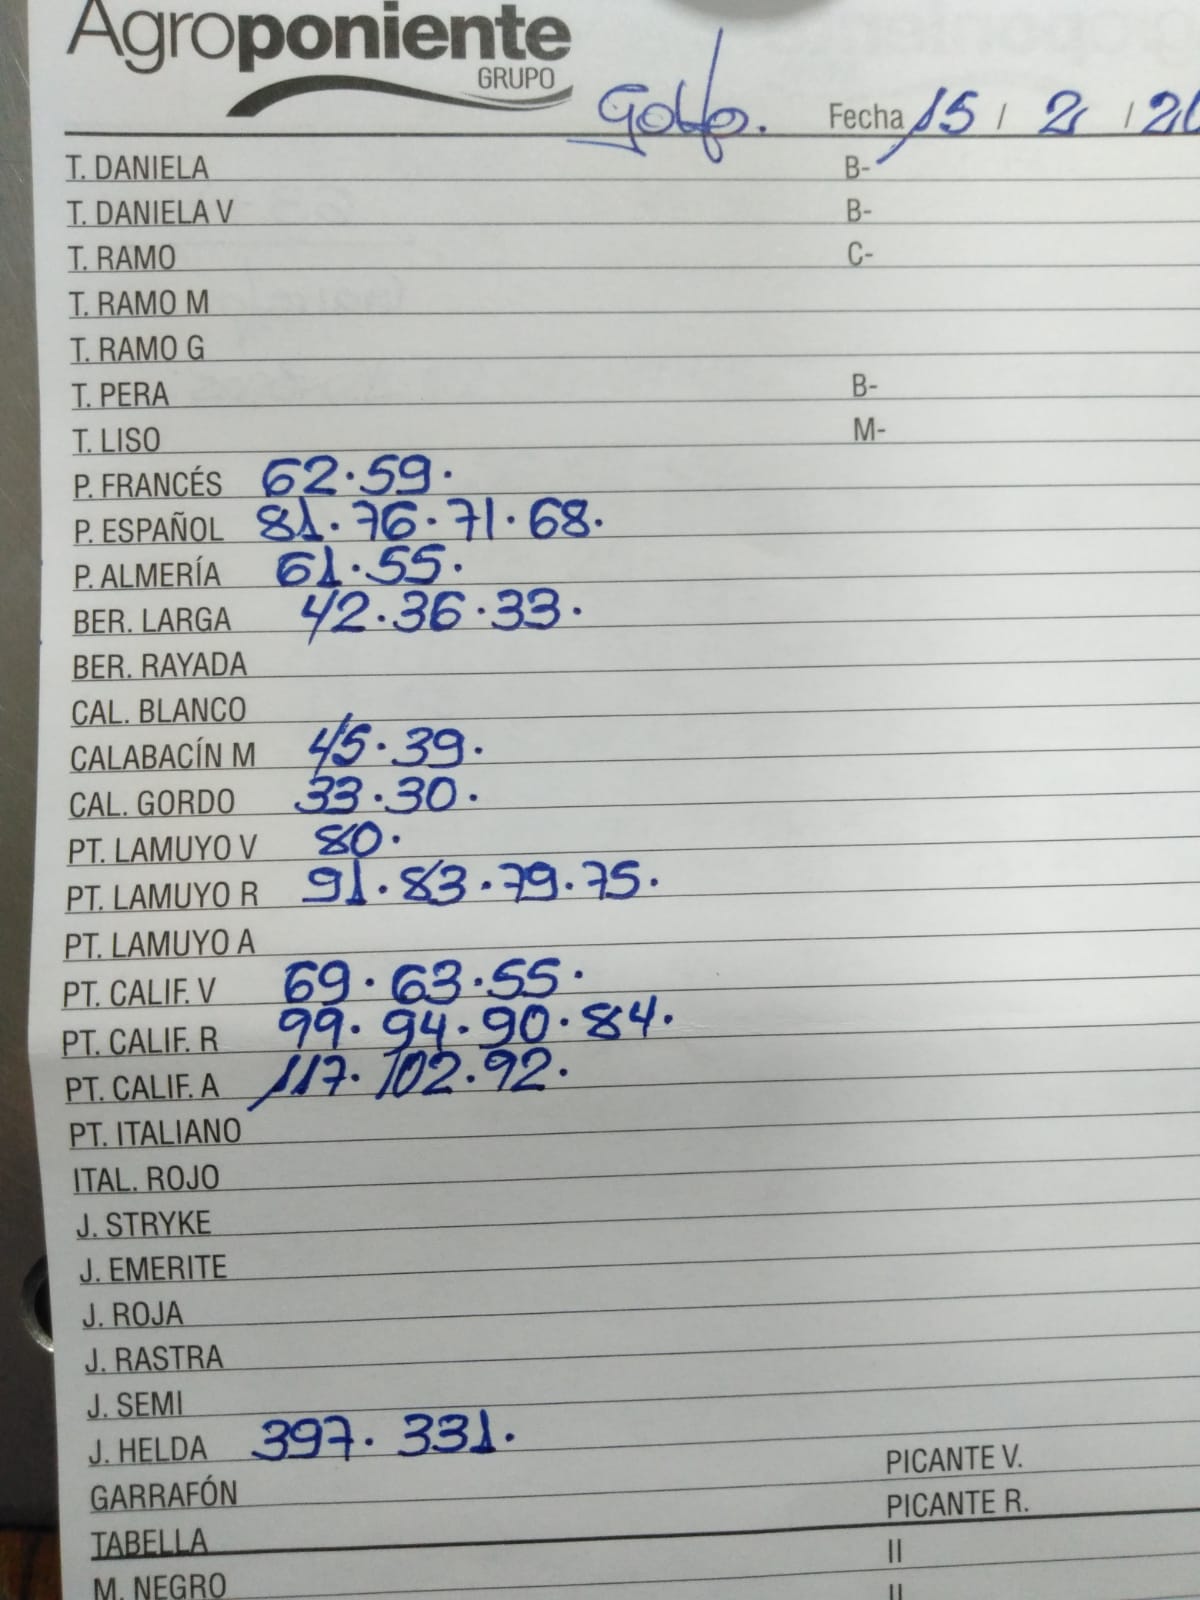 Agroponiente
GRUPO
Golfo. Fecha 15 / 2 / 20
T. DANIELA B-
T. DANIELA V B-
T. RAMO C-
T. RAMO M
T. RAMO G
T. PERA B-
T. LISO M-
P. FRANCÉS 62·59·
P. ESPAÑOL 81·76·71·68·
P. ALMERÍA 61·55·
BER. LARGA 42·36·33·
BER. RAYADA
CAL. BLANCO
CALABACÍN M 45·39·
CAL. GORDO 33·30·
PT. LAMUYO V 80·
PT. LAMUYO R 91·83·79·75·
PT. LAMUYO A
PT. CALIF. V 69·63·55·
PT. CALIF. R 99·94·90·84·
PT. CALIF. A 117·102·92·
PT. ITALIANO
ITAL. ROJO
J. STRYKE
J. EMERITE
J. ROJA
J. RASTRA
J. SEMI
J. HELDA 397·331·
GARRAFÓN PICANTE V.
TABELLA PICANTE R.
M. NEGRO II
II